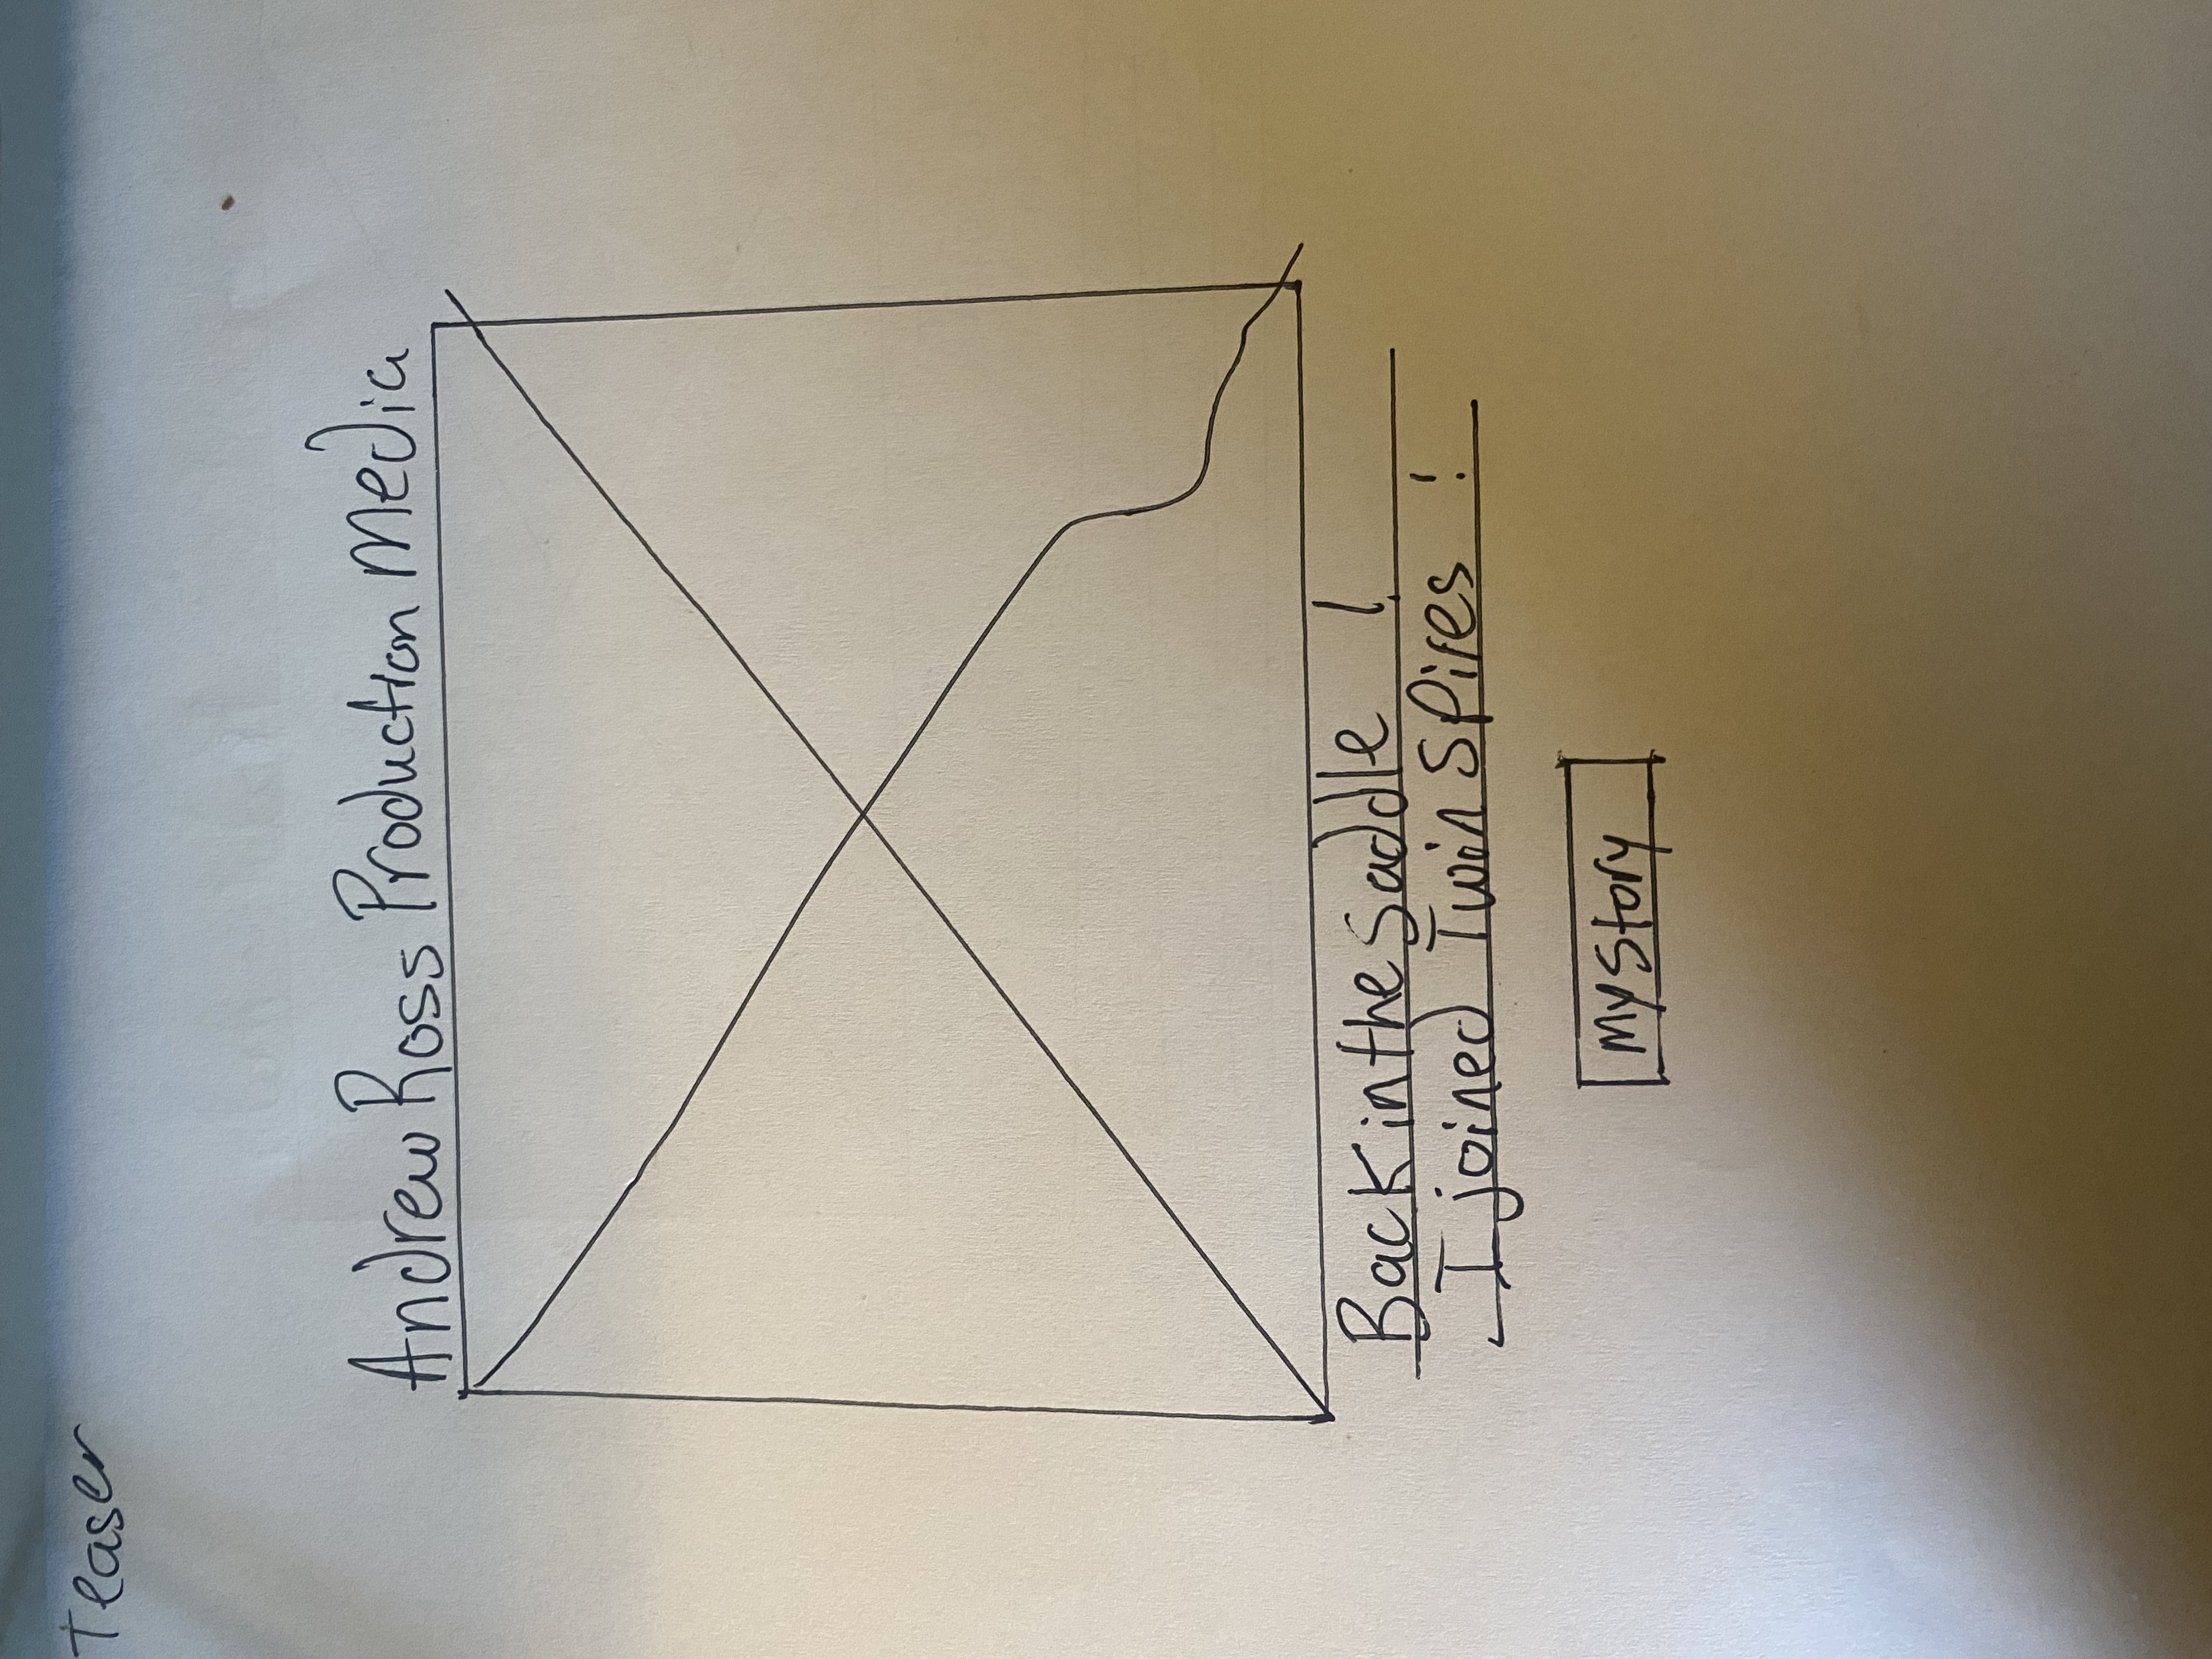 Teaser
Andrew Ross Production Media
Back in the Saddle !
I joined Twin Spires !
My Story